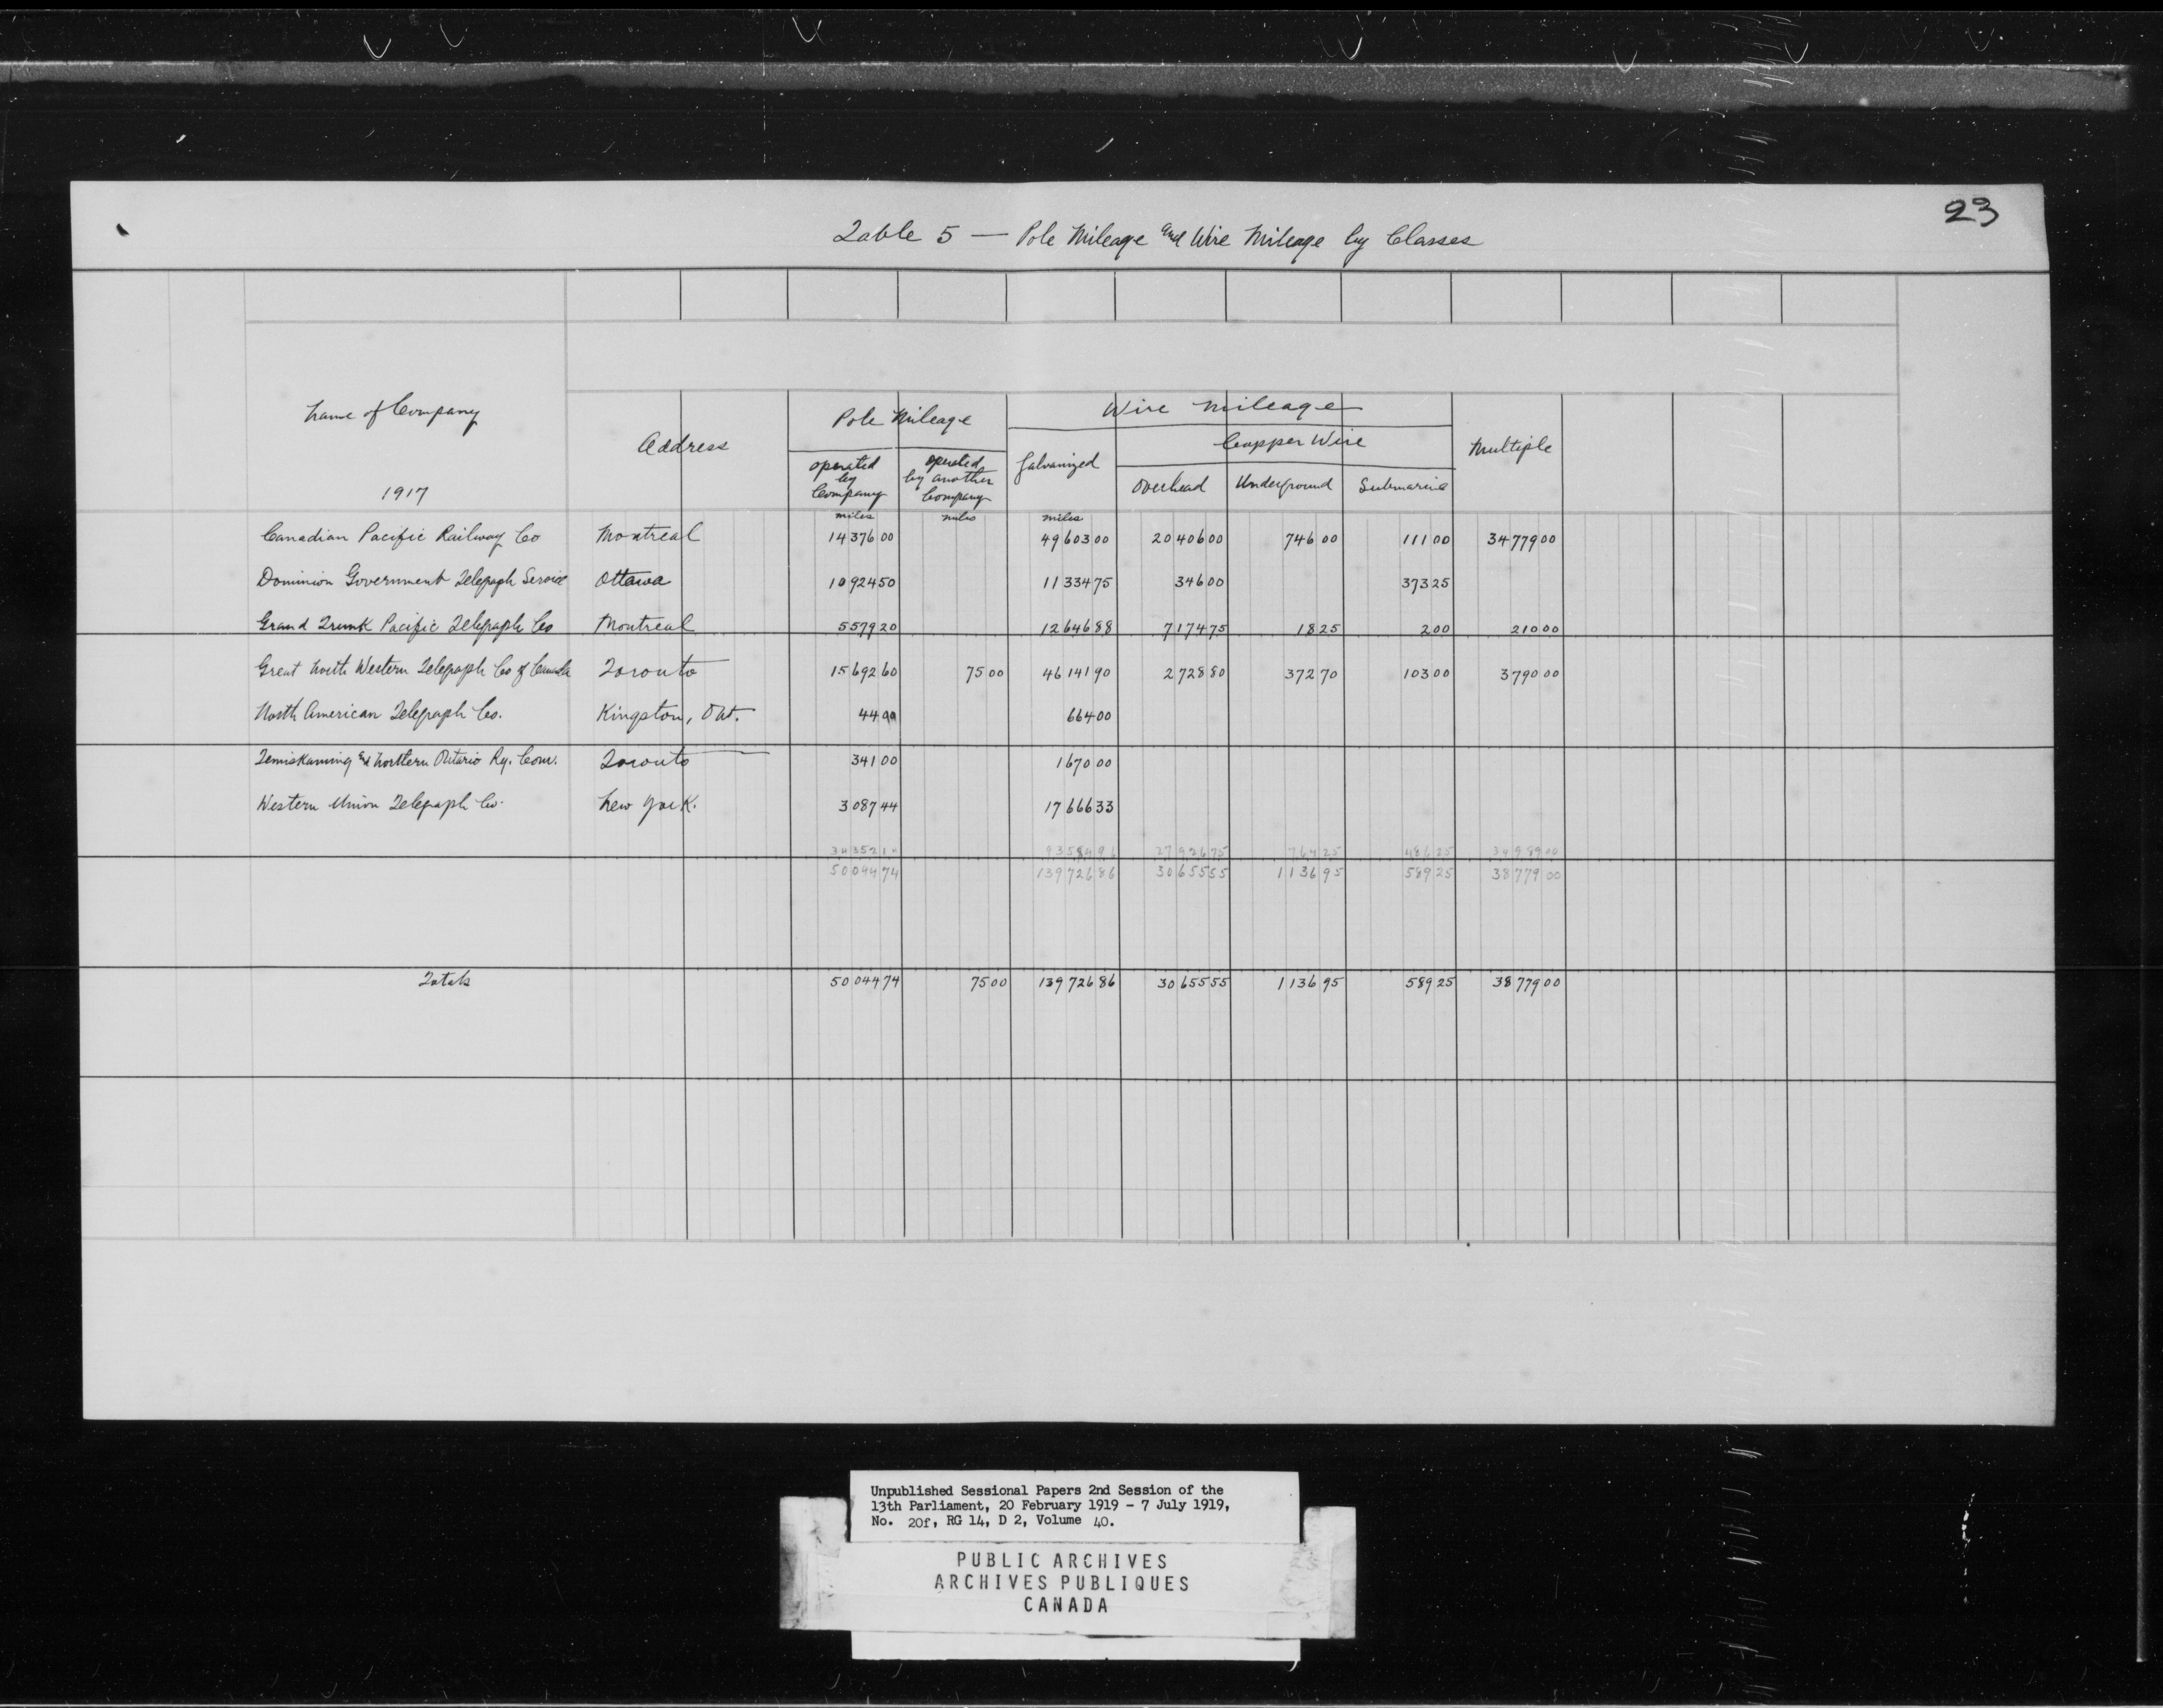 23
Table 5 — Pole Mileage and Wire Mileage by Classes
Name of Company
1917
Address
Pole Mileage
operated by Company
operated by another Company
Wire Mileage
Galvanized
Copper Wire
Overhead
Underground
Submarine
Multiple
miles miles miles
Canadian Pacific Railway Co Montreal 14376 00 49603 00 20406 00 746 00 111 00 34779 00
Dominion Government Telegraph Service Ottawa 10924 50 11334 75 346 00 373 25
Grand Trunk Pacific Telegraph Co Montreal 5579 20 12646 88 7174 75 18 25 2 00 210 00
Great North Western Telegraph Co of Canada Toronto 15692 60 75 00 46141 90 2728 80 372 70 103 00 3790 00
North American Telegraph Co. Kingston, Ont. 44 00 664 00
Temiskaming and Northern Ontario Ry. Com. Toronto 341 00 1670 00
Western Union Telegraph Co. New York. 3087 44 17666 33
27926 75 764 25 486 25 34989 00
50044 74 139726 86 30655 55 1136 95 589 25 38779 00
Totals 50044 74 75 00 139726 86 30655 55 1136 95 589 25 38779 00
Unpublished Sessional Papers 2nd Session of the
13th Parliament, 20 February 1919 - 7 July 1919,
No. 20f, RG 14, D 2, Volume 40.
PUBLIC ARCHIVES
ARCHIVES PUBLIQUES
CANADA